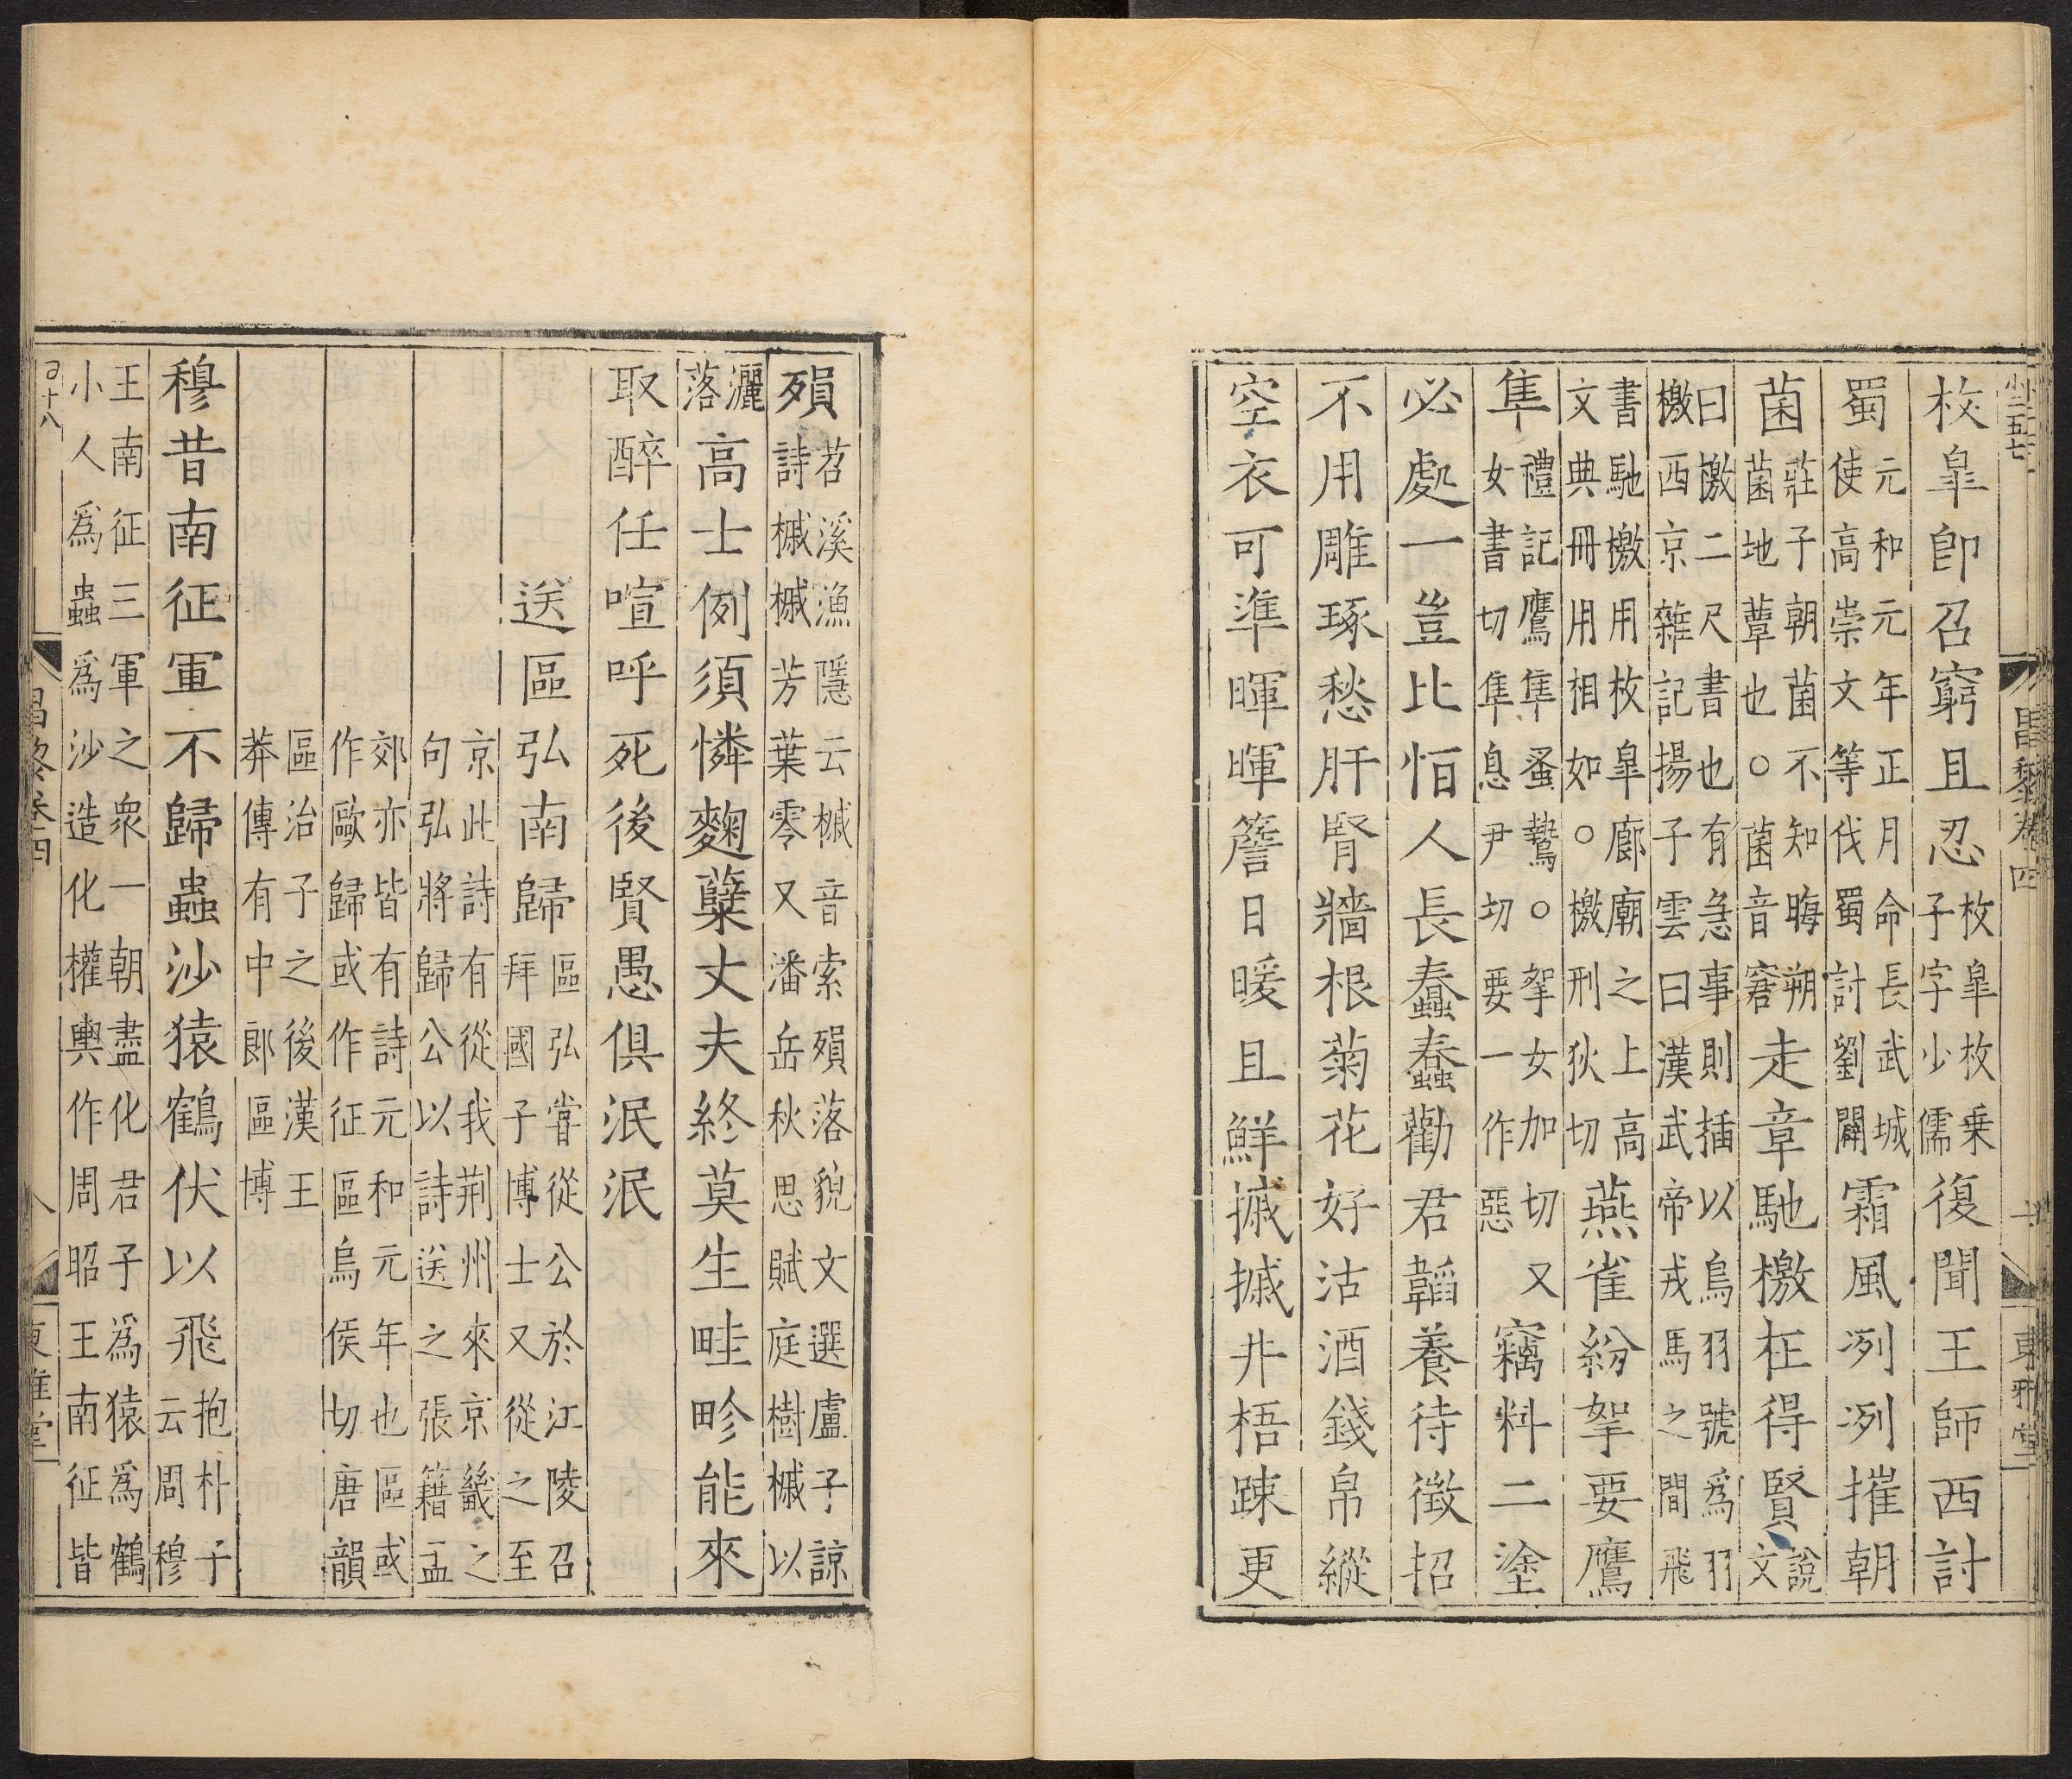 昌黎卷四
東雅堂
枚皐卽召窮且忍枚皐枚乗子字少儒復聞王師西討
蜀元和元年正月命長武城使高崇文等伐蜀討劉闢霜風冽冽摧朝
菌莊子朝菌不知晦朔菌地蕈也○菌音窘走章馳檄在得賢說文
曰檄二尺書也有急事則插以鳥羽號爲羽檄西京雜記揚子雲曰漢武帝戎馬之間飛
書馳檄用枚皐廊廟之上高文典冊用相如○檄刑狄切燕雀紛拏要鷹
隼禮記鷹隼蚤鷙○拏女加切又女書切隼息尹切要一作惡竊料二塗
必處一豈比恒人長蠢蠢勸君韜養待徵招
不用雕琢愁肝腎牆根菊花好沽酒錢帛縱
空衣可準暉暉簷日暖且鮮摵摵井梧踈更
殞苕溪漁隱云槭音索殞落貌文選盧子諒詩槭槭芳葉零又潘岳秋思賦庭樹槭以
灑落高士例須憐麴糵丈夫終莫生畦畛能來
取醉任喧呼死後賢愚俱泯泯
送區弘南歸區弘嘗從公於江陵召拜國子博士又從之至
京此詩有從我荆州來京畿之句弘將歸公以詩送之張籍孟
郊亦皆有詩元和元年也區或作歐歸或作征區烏侯切唐韻
區治子之後漢王莽傳有中郎區博
穆昔南征軍不歸蟲沙猿鶴伏以飛抱朴子云周穆
王南征三軍之衆一朝盡化君子爲猿爲鶴小人爲蟲爲沙造化權輿作周昭王南征皆
昌黎卷四
八
東雅堂